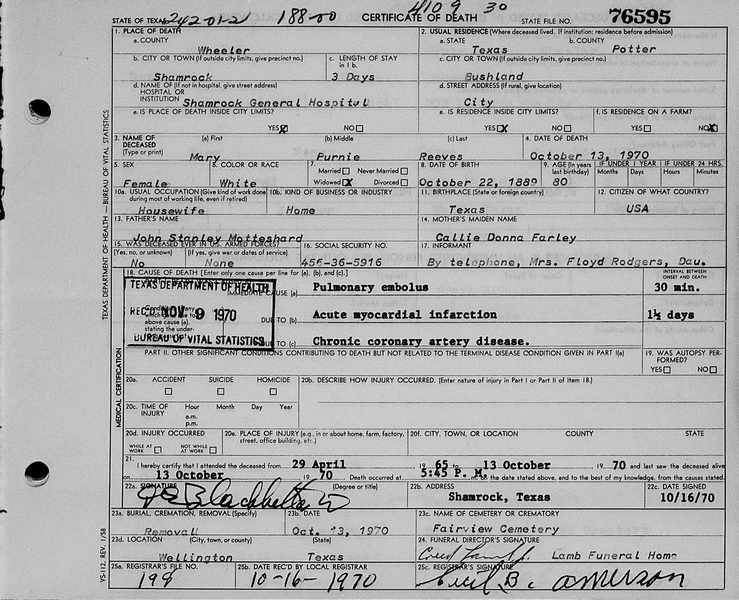 242-01-2 188-00 4109 30
STATE OF TEXAS CERTIFICATE OF DEATH STATE FILE NO. 76595
1. PLACE OF DEATH 2. USUAL RESIDENCE (Where deceased lived. If institution: residence before admission)
a. COUNTY a. STATE b. COUNTY
Wheeler Texas Potter
b. CITY OR TOWN (If outside city limits, give precinct no.) c. LENGTH OF STAY in 1 b. c. CITY OR TOWN (If outside city limits, give precinct no.)
Shamrock 3 Days Bushland
d. NAME OF (If not in hospital, give street address) HOSPITAL OR INSTITUTION d. STREET ADDRESS (If rural, give location)
Shamrock General Hospital City
e. IS PLACE OF DEATH INSIDE CITY LIMITS? e. IS RESIDENCE INSIDE CITY LIMITS? f. IS RESIDENCE ON A FARM?
YES X NO YES X NO YES NO X
3. NAME OF DECEASED (Type or print) (a) First (b) Middle (c) Last 4. DATE OF DEATH
Mary Purnie Reeves October 13, 1970
5. SEX 6. COLOR OR RACE 7. Married Never Married Widowed X Divorced 8. DATE OF BIRTH 9. AGE (In years last birthday) IF UNDER 1 YEAR Months Days IF UNDER 24 HRS. Hours Minutes
Female White October 22, 1889 80
10a. USUAL OCCUPATION (Give kind of work done during most of working life, even if retired) 10b. KIND OF BUSINESS OR INDUSTRY 11. BIRTHPLACE (State or foreign country) 12. CITIZEN OF WHAT COUNTRY?
Housewife Home Texas USA
13. FATHER'S NAME 14. MOTHER'S MAIDEN NAME
John Stanley Motteshard Callie Donna Farley
15. WAS DECEASED EVER IN U.S. ARMED FORCES? 16. SOCIAL SECURITY NO. 17. INFORMANT
(Yes, no, or unknown) (If yes, give war or dates of service)
No None 456-36-5916 By telephone, Mrs. Floyd Rodgers, Dau.
18. CAUSE OF DEATH [Enter only one cause per line for (a), (b), and (c).] INTERVAL BETWEEN ONSET AND DEATH
TEXAS DEPARTMENT OF HEALTH
IMMEDIATE CAUSE (a) Pulmonary embolus 30 min.
REC'D NOV 9 1970
DUE TO (b) Acute myocardial infarction 1½ days
above cause (a), stating the under-
BUREAU OF VITAL STATISTICS
DUE TO (c) Chronic coronary artery disease.
PART II. OTHER SIGNIFICANT CONDITIONS CONTRIBUTING TO DEATH BUT NOT RELATED TO THE TERMINAL DISEASE CONDITION GIVEN IN PART I(a) 19. WAS AUTOPSY PERFORMED?
YES NO
20a. ACCIDENT SUICIDE HOMICIDE 20b. DESCRIBE HOW INJURY OCCURRED. (Enter nature of injury in Part I or Part II of Item 18.)
20c. TIME OF INJURY Hour a.m. p.m. Month Day Year
20d. INJURY OCCURRED 20e. PLACE OF INJURY (e.g., in or about home, farm, factory, street, office building, etc.) 20f. CITY, TOWN, OR LOCATION COUNTY STATE
WHILE AT WORK NOT WHILE AT WORK
21. I hereby certify that I attended the deceased from 29 April 19 65 to 13 October 19 70 and last saw the deceased alive
on 13 October 19 70 Death occurred at 5:45 P. M. on the date stated above, and to the best of my knowledge, from the causes stated.
22a. SIGNATURE (Degree or title) 22b. ADDRESS 22c. DATE SIGNED
Shamrock, Texas 10/16/70
23a. BURIAL, CREMATION, REMOVAL (Specify) 23b. DATE 23c. NAME OF CEMETERY OR CREMATORY
Removal Oct. 13, 1970 Fairview Cemetery
23d. LOCATION (City, town, or county) (State) 24. FUNERAL DIRECTOR'S SIGNATURE
Wellington Texas Lamb Funeral Home
25a. REGISTRAR'S FILE NO. 25b. DATE REC'D BY LOCAL REGISTRAR 25c. REGISTRAR'S SIGNATURE
198 10-16-1970 Cecil B.
TEXAS DEPARTMENT OF HEALTH — BUREAU OF VITAL STATISTICS
MEDICAL CERTIFICATION
VS-112, REV. 1/58